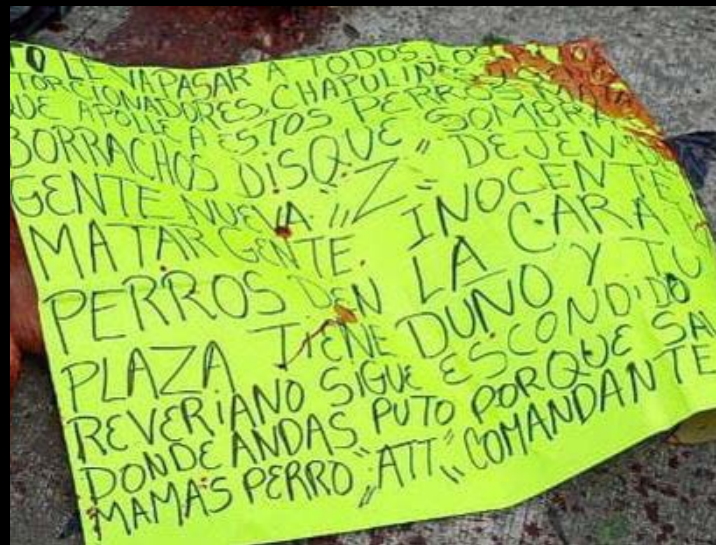 TO LE VA PASAR A TODOS LOS
TORCIONADORES, CHAPULINES Y
QUE APOLLE A ESTOS PERROS MATA
BORRACHOS DISQUE SOMBRA
GENTE NUEVA "Z" DEJEN DE
MATAR GENTE INOCENTE
PERROS DEN LA CARA
PLAZA TIENE DUNO Y TU
REVERIANO SIGUE ESCONDIDO
DONDE ANDAS PUTO PORQUE SA
MAMAS PERRO "ATT" COMANDANTE